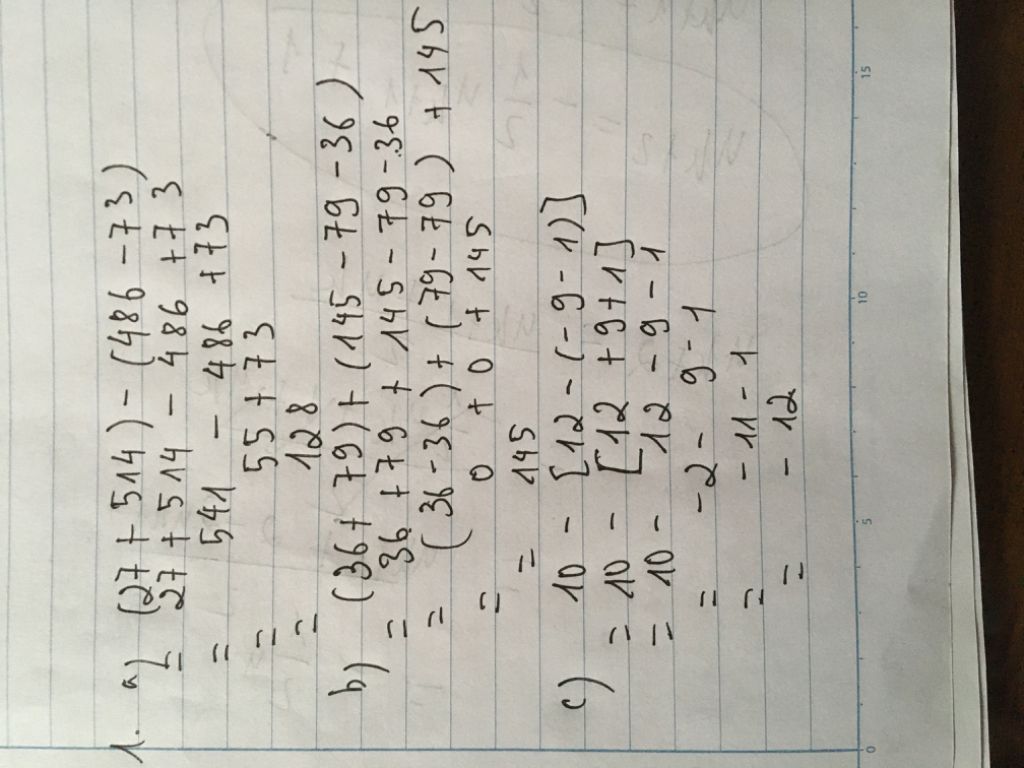 1. a) (27 + 514) - (486 - 73)
= 27 + 514 - 486 + 73
= 541 - 486 + 73
= 55 + 73
= 128
b) (36 + 79) + (145 - 79 - 36)
= 36 + 79 + 145 - 79 - 36
= (36 - 36) + (79 - 79) + 145
= 0 + 0 + 145
= 145
c) 10 - [12 - (-9 - 1)]
= 10 - [12 + 9 + 1]
= 10 - 12 - 9 - 1
= -2 - 9 - 1
= -11 - 1
= -12
0 5 10 15